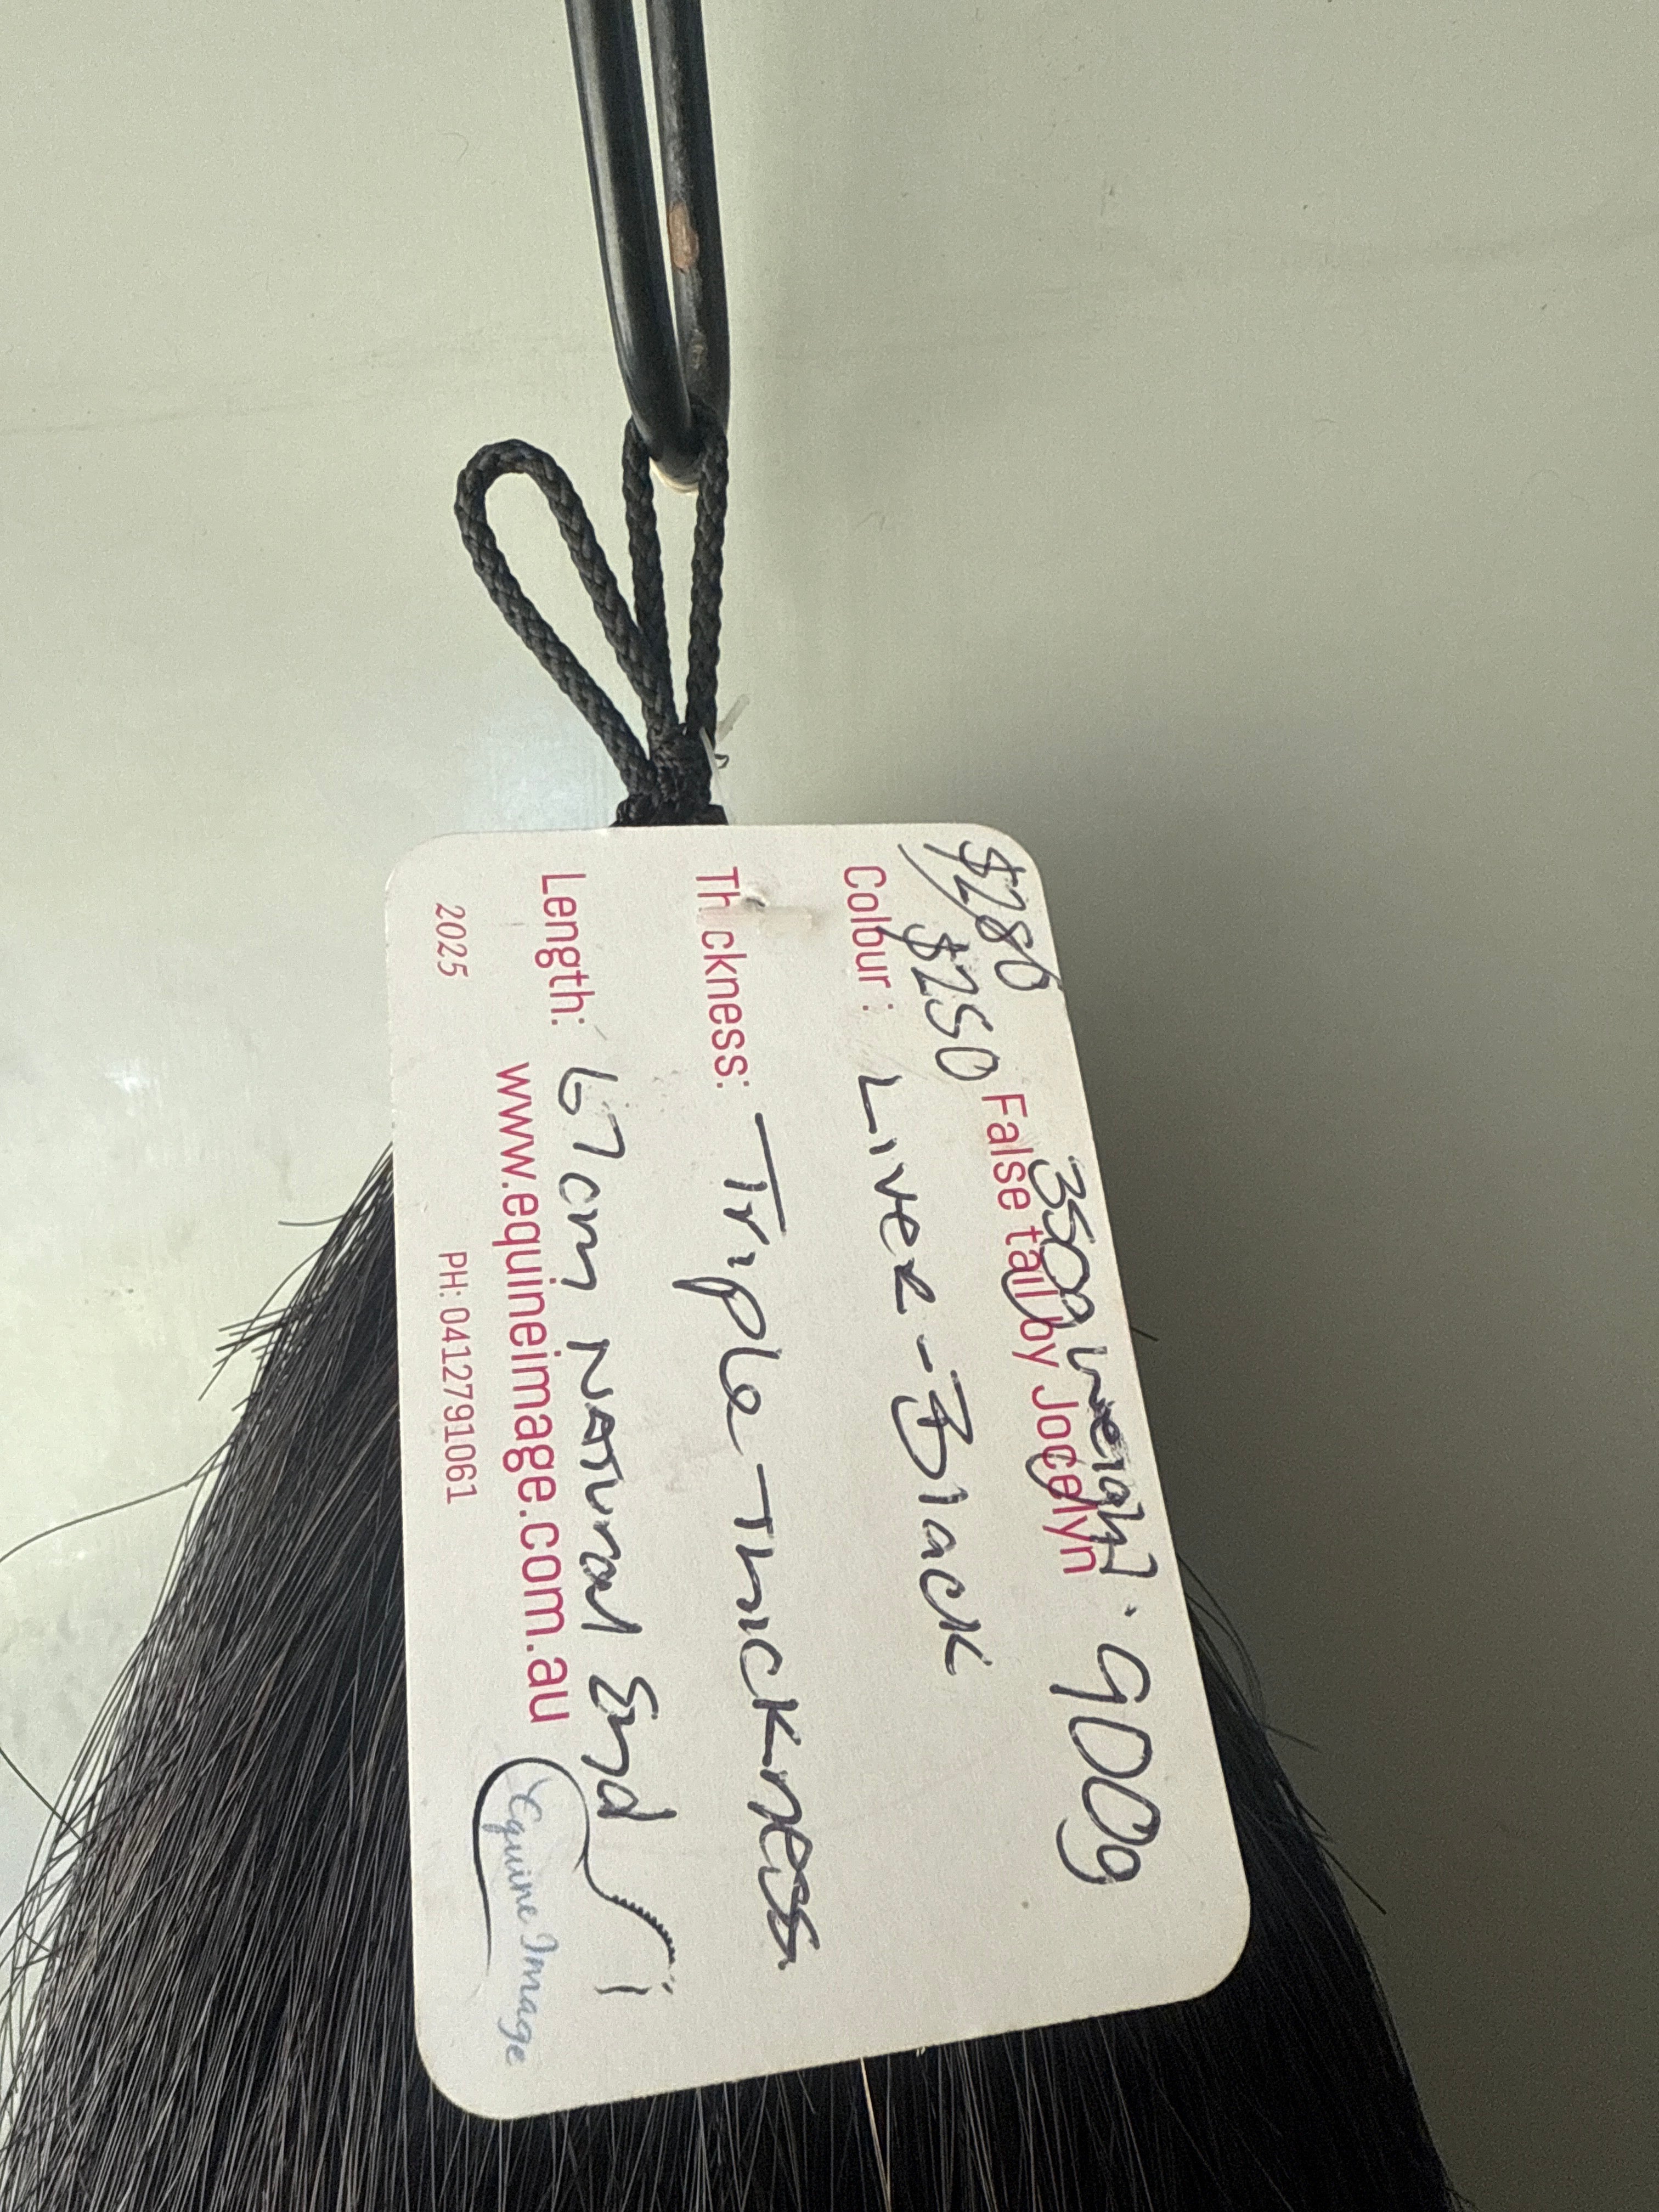 $280
$250
350g weight. 900g
False tail by Jocelyn
Colour: Liver-Black
Thickness: Triple Thickness
Length: 67cm Natural End
www.equineimage.com.au
2025 PH: 0412791061
Equine Image